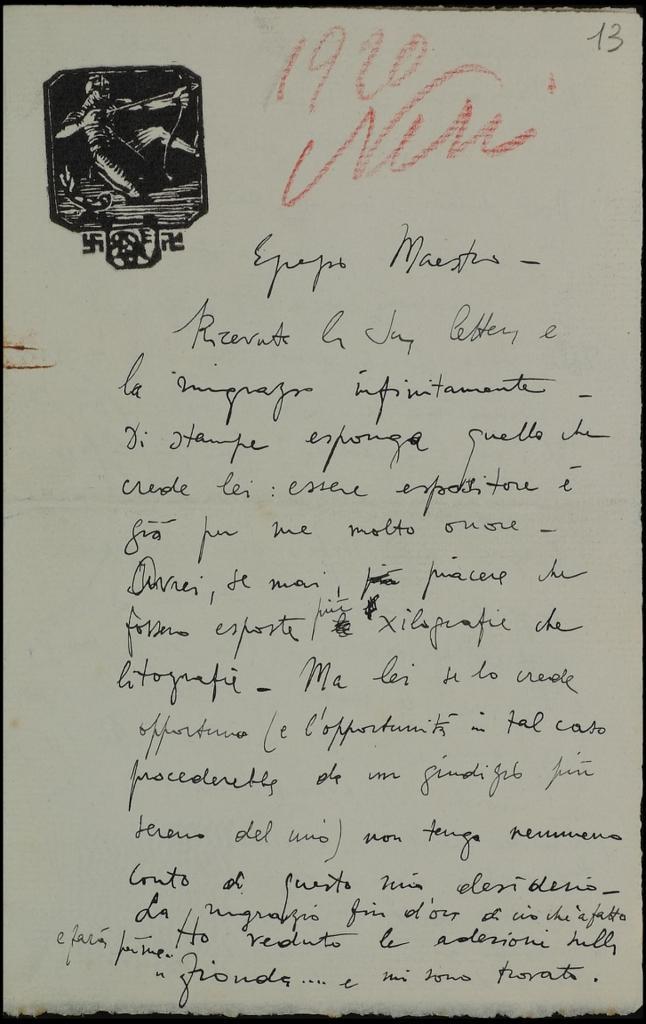 13
1920
Neri
Egregio Maestro -
Ricevuto la Sua lettera e
la ringrazio infinitamente -
Di stampe esponga quello che
crede lei : essere espositore è
già per me molto onore -
Avrei, se mai, piacere che
fossero esposte più xilografie che
litografie - Ma lei se lo crede
opportuno (e l'opportunità in tal caso
procederebbe da un giudizio più
sereno del mio) non tenga nemmeno
conto di questo mio desiderio -
La ringrazio fin d'ora di ciò che à fatto
e farà per me. Ho veduto le adesioni sulla
"Fionda".... e mi sono trovato.